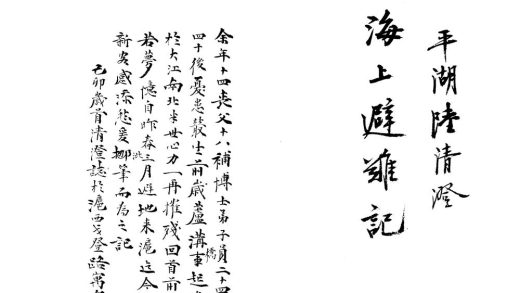 平湖陸清澄
海上避難記
余年十四喪父十八補博士弟子員二十四
四十後憂患叢生前歲蘆溝橋事起
於大江南北半世心力一再摧殘回首前
若夢憶自昨春三月避地來滬迄今
新安感添愁爰擲筆而為之記
己卯歲首清澄誌於滬西戈登路萬